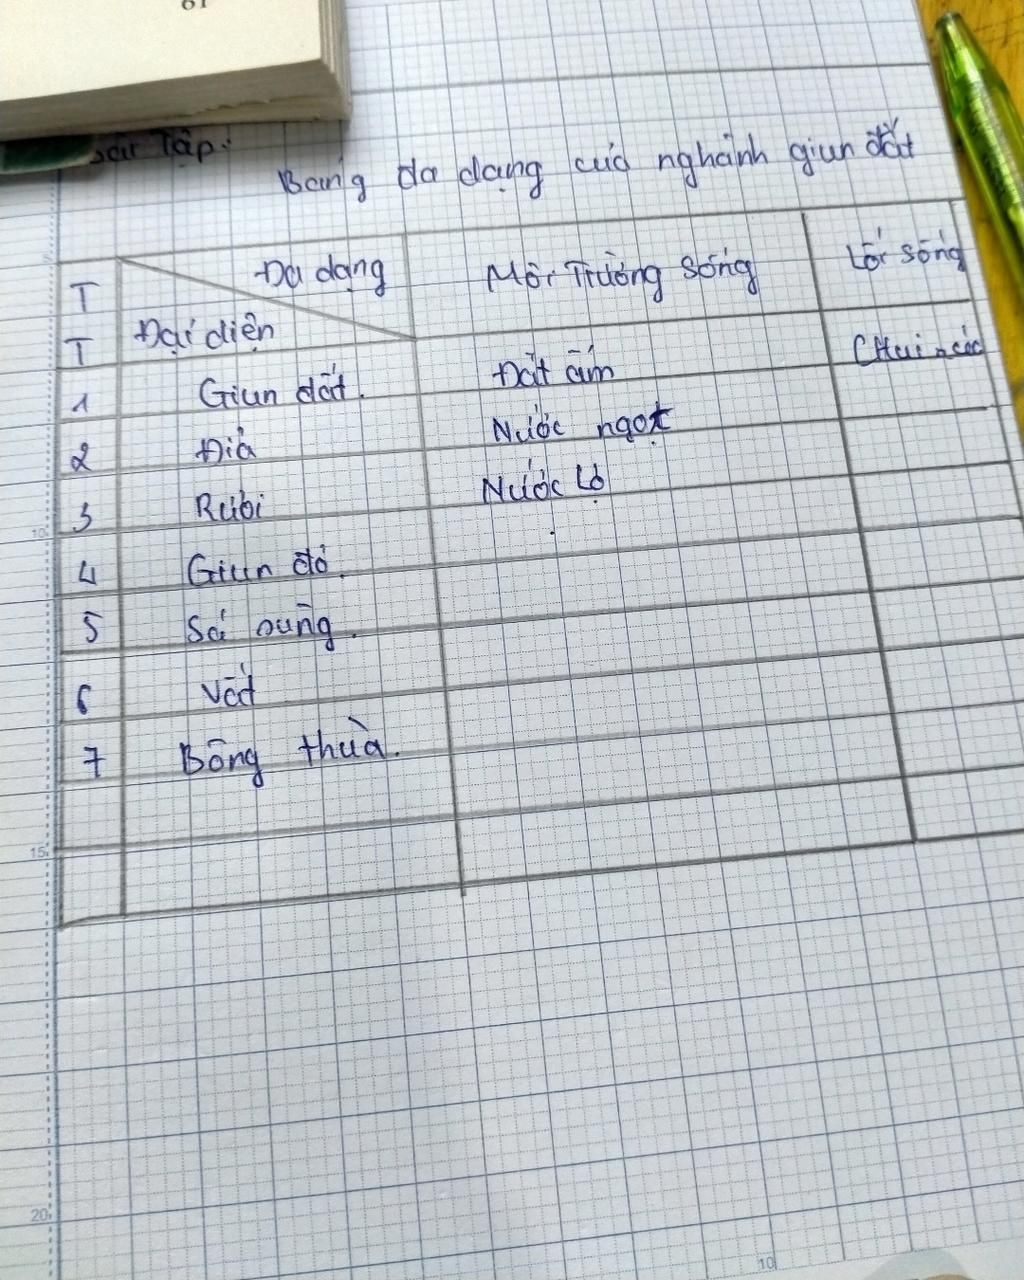 61
Bài Tập:
Bảng đa dạng của nghành giun đất
TT Đa dạng Đại diện Môi Trường sống Lối sống
1 Giun đất. Đất ẩm Chui rúc
2 Đỉa Nước ngọt
3 Rươi Nước Lợ
4 Giun đỏ.
5 Sá sùng.
6 Vắt
7 Bông thùa.
10
15
20
10